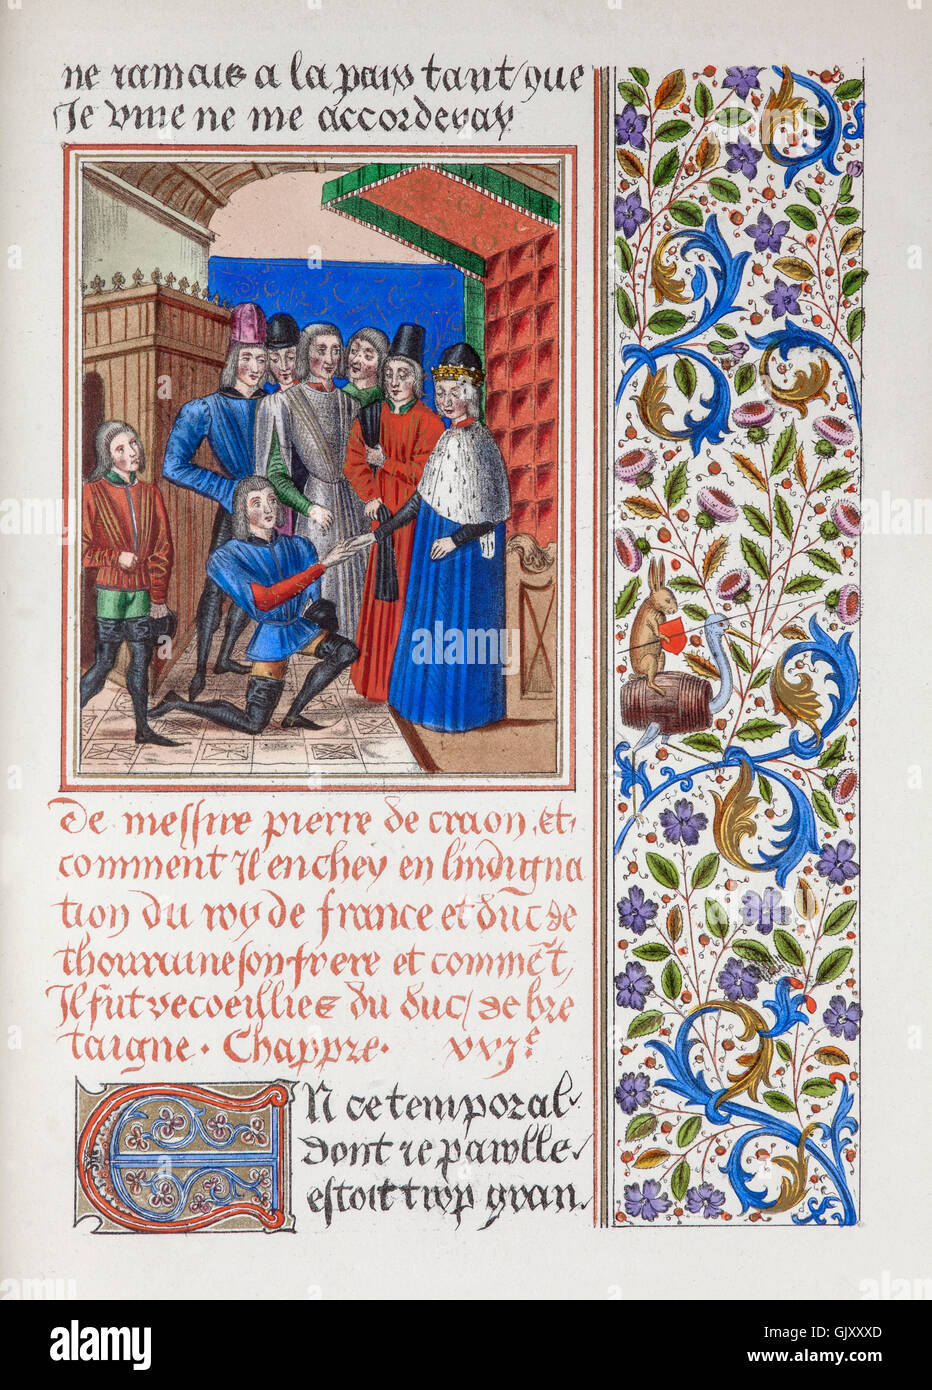 ne iamais a la paix tant que
Je vive ne me accorderay
De messire pierre de craon et
comment Il enchey en lindigna
tion du roy de france et duc de
thourraine son frere et comment
Il fut recoeillies du duc de bre
taigne. Chappre. xxj.e
EN ce temporal
dont je parolle
estoit trop gran
alamy
Image ID: GJXXXD
www.alamy.com